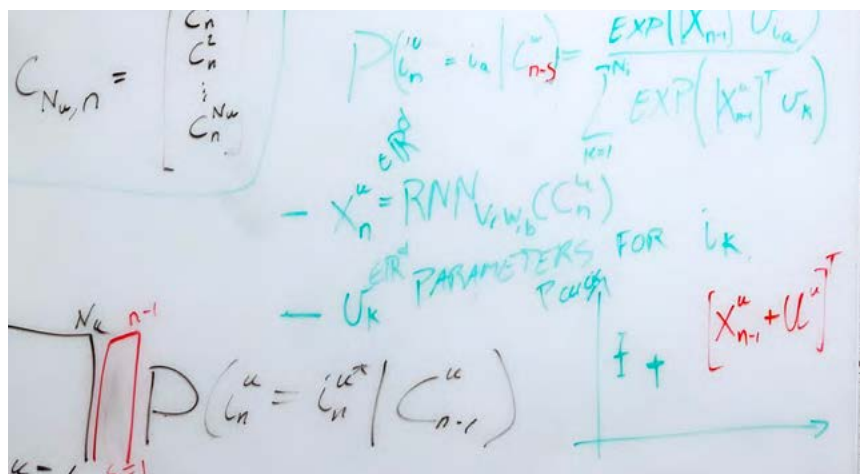 C_{N_u,n} = [C_n^1 C_n^2 ⋮ C_n^{N_u}]
P(i_n^u = i_a | C_{n-s}^u) = EXP([X_{n-1}^u] U_{i_a}) / Σ_{k=1}^{N_i} EXP([X_{n-1}^u]^T U_k)
∈ℝ^d
- X_n^u = RNN_{V,W,b}(C_n^u)
- U_k ∈ℝ^d PARAMETERS FOR i_k
N_u n-1
P(i_n^u = i_n^{u*} | C_{n-1}^u)
[X_{n-1}^u + U^u]^T
+